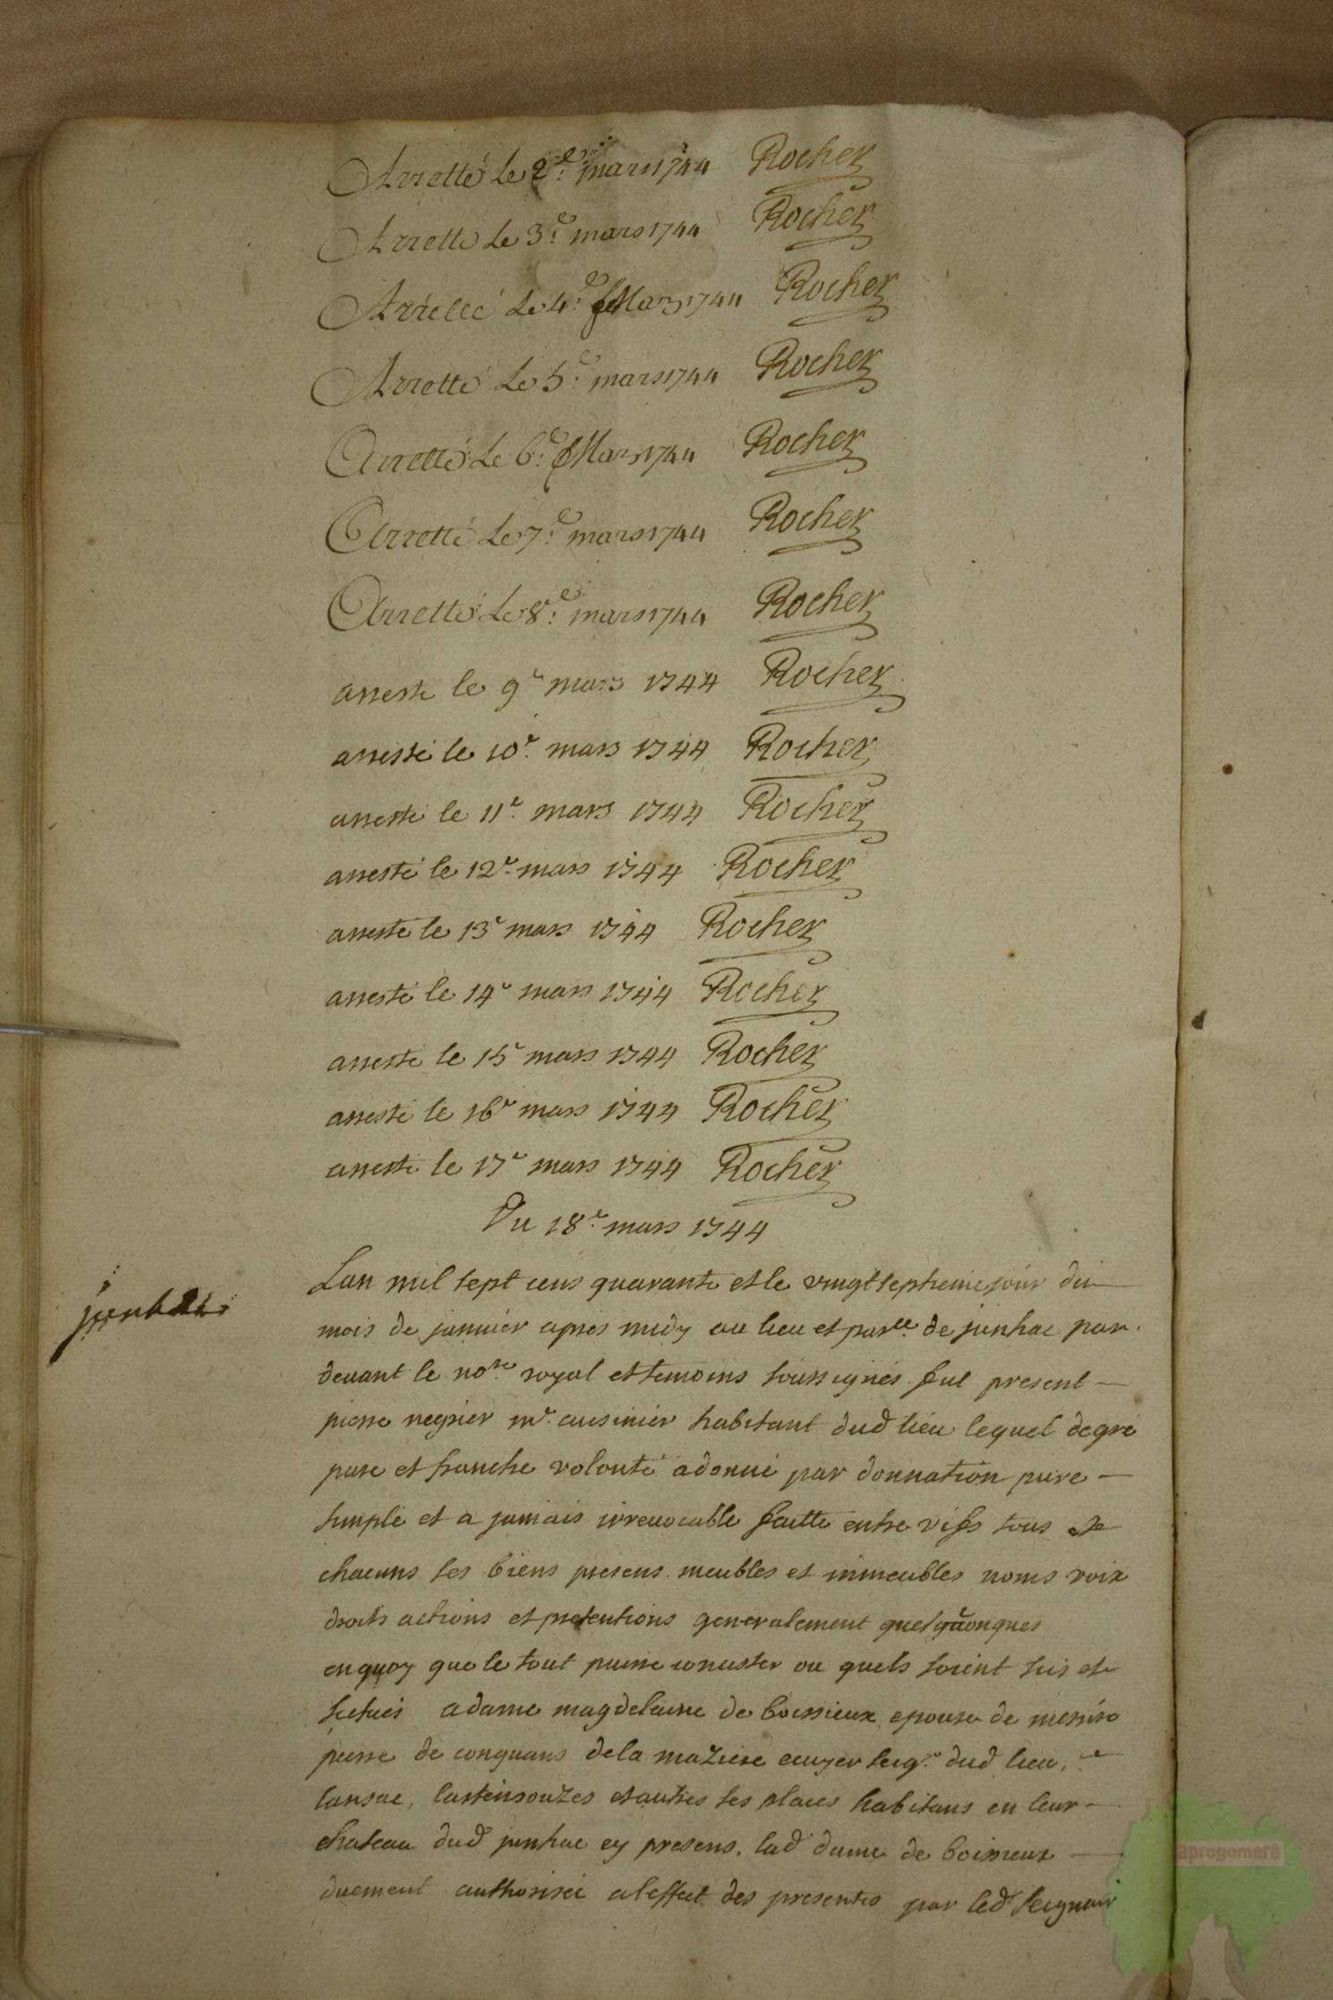 Arretté le 2e. mars 1744 Rocher
Arretté le 3e. mars 1744 Rocher
Arretté le 4e. Mars 1744 Rocher
Arretté le 5e. mars 1744 Rocher
Arretté le 6e. Mars 1744 Rocher
Arretté le 7e. mars 1744 Rocher
Arretté le 8e. mars 1744 Rocher
arresté le 9e mars 1744 Rocher
arresté le 10e. mars 1744 Rocher
arresté le 11e. mars 1744 Rocher
arresté le 12e. mars 1744 Rocher
arresté le 13e mars 1744 Rocher
arresté le 14e mars 1744 Rocher
arresté le 15e mars 1744 Rocher
arresté le 16e mars 1744 Rocher
arresté le 17e mars 1744 Rocher
Du 18e. mars 1744
Lan mil sept cens quarante et le vingt septieme jour du
mois de janvier apres midy au lieu et parlle. de junhac par
devant le nore. royal et temoins soussignés fut present
pierre negrier mr. cuisinier habitant dud lieu lequel de gré
pure et franche volonté a donné par donnation pure
simple et a jamais irrevocable faitte entre vifs tous et
chacuns ses biens presens meubles et immeubles noms voix
droits actions et pretentions generalement quelquonques
en quoy que le tout puisse consister ou quels soient sis et
scitués a dame magdeleine de boissieux epouse de messire
pierre de conquans de la maziere ecuyer seigr. dud lieu,
lansac, lastensouzes et autres ses places habitans en leur
chateau dud junhac cy presens. lad dame de boissieux
duement authorisée a leffet des presentes par led seigneur
aprogemere